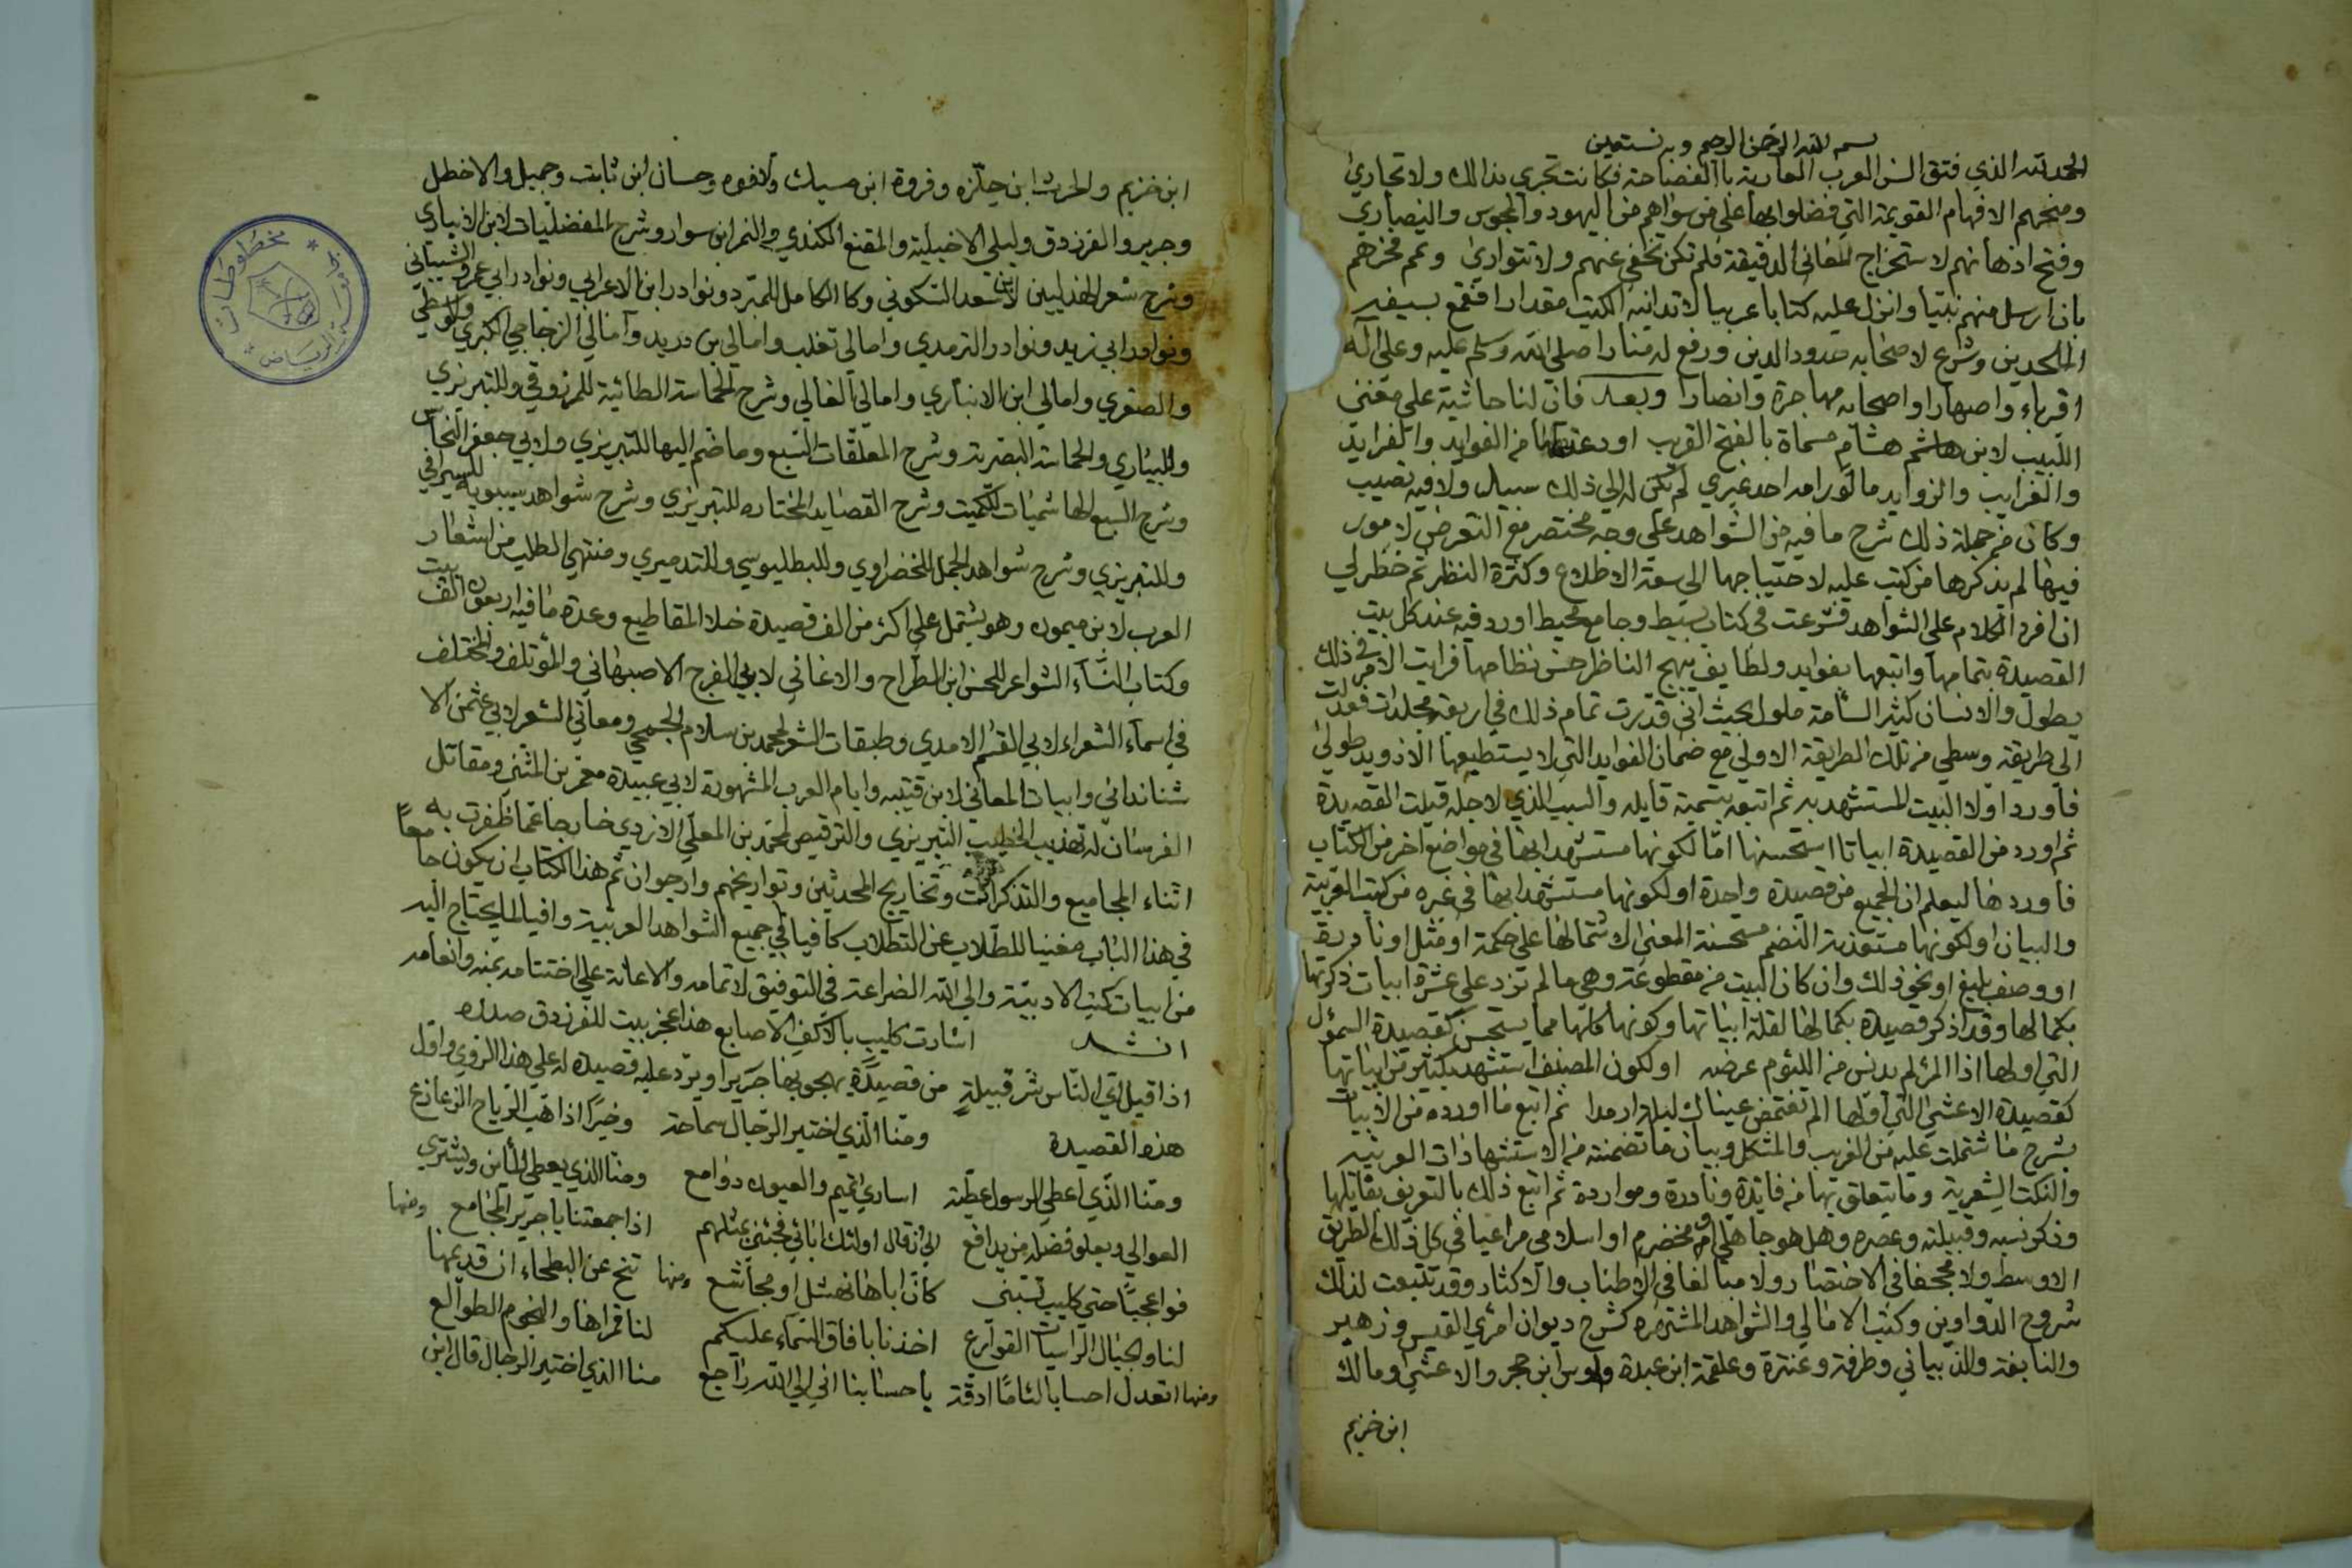 بسم الله الرحمن الرحيم وبه نستعين
الحمد لله الذي فتق السن العرب العاربة باالفصاحة فكانت تجري بذالك ولا تجاري
ومنحهم الافهام القويمة التي فضلوا بها على من سواهم من اليهود والمجوس والنصاري
وفتح اذهانهم لاستخراج المعاني الدقيقة فلم تكن تخفى عنهم ولا تتوارى وعمم فخرهم
بان ارسل منهم نبيا وانزل عليه كتابا عربيا لا تدانيه الكتب مقدارا فقمع بسيفه
الملحدين وشرع لاصحابه حدود الدين ورفع له منارا صلى الله وسلم عليه وعلى آله
اقرباء واصهارا واصحابه مهاجرة وانصارا وبعد فان لنا حاشية على مغنى
اللبيب لابن هاشم هشام مسماة بالفتح القريب اودعتها من الفوايد والفرايد
والغرايب والزوايد ما لو رامه احد غيري لم يكن له الى ذلك سبيل ولا فيه نصيب
وكان من جملة ذلك شرح ما فيه من الشواهد على وجه مختصر مع التعرض لامور
فيها لم يذكرها من كتب عليه لاحتياجها الى سعة الاطلاع وكثرة النظر ثم خطر لي
ان افرد الكلام على الشواهد فشرعت في كتاب بسيط وجامع محيط اورد فيه عند كل بيت
القصيدة بتمامها واتبعها بفوايد ولطايف يبهج الناظر حسن نظامها فرايت الامر في ذلك
يطول والانسان كثير السأمة ملول بحيث اني قدرت تمام ذلك في اربعة مجلدات فعدلت
الى طريقة وسطى من تلك الطريقة الاولى مع ضمان الفوايد التي لا يستطيعها الا ذو يد طولى
فاورد اولا البيت المستشهد به ثم اتبعه بتسمية قايله والسبب الذي لاجله قيلت القصيدة
ثم اورد من القصيدة ابياتا استحسنها اما لكونها مستشهدا بها في مواضع اخر من الكتاب
فاوردها ليعلم ان الجميع من قصيدة واحدة او لكونها مستشهدا بها في غيره من كتب العربية
والبيان او لكونها مستعذبة النضم مستحسنة المعنى لاشتمالها على حكمة او مثل او نادرة
او وصف بليغ او نحو ذلك وان كان البيت من مقطوعة وهي ما لم تزد على عشرة ابيات ذكرتها
بكمالها وقد اذكر قصيدة بكمالها لقلة ابياتها وكونها كلها مما يستحسن كقصيدة السموئل
التي اولها اذا المرء لم يدنس من اللئوم عرضه او لكون المصنف استشهد بكثير من ابياتها
كقصيدة الاعشى التي اولها الم تغتمض عيناك ليلة ارمدا ثم اتبع ما اورده من الابيات
بشرح ما اشتملت عليه من الغريب والمشكل وبيان ما تضمنته من الاستشهادات العربية
والنكت الشعرية وما يتعلق بها من فايدة ونادرة ومواردة ثم اتبع ذلك بالتعريف بقايلها
وذكر نسبه وقبيلته وعصره وهل هو جاهلي ام مخضرم او اسلامي مراعيا في كل ذلك الطريق
الاوسط ولا مجحفا في الاختصار ولا مبالغا في الاطناب والاكثار وقد تتبعت لذلك
شروح الدواوين وكتب الامالي والشواهد المشتهره كشرح ديوان امرئ القيس وزهير
والنابغة والذبياني وطرفة وعنترة وعلقمة ابن عبدة واوس ابن حجر والاعشى ومالك
ابن خزيم
ابن خزيم والحرث ابن حلزه وفروة ابن مسيك والافوه وحسان ابن ثابت وجميل والاخطل
وجرير والفرزدق وليلى الاخيلية والمقنع الكندي والنمر ابن سوار وشرح المفضليات لابن الانباري
وشرح شعر الهذليين لابن سعد السكوني وكا الكامل للمبرد ونوادر ابن الاعرابي ونوادر ابي عمرو الشيباني
ونوادر ابي زيد ونوادر الترمدي وامالى ثعلب وامالى بن دريد وامالي الزجاجي الكبري والوسطى
والصغري وامالي ابن الانباري وامالى القالي وشرح الحماسة الطائية للمرزوقي وللتبريزي
وللبياري والحماسة البصرية وشرح المعلقات السبع وما ضم اليها للتبريزي ولابي جعفر النحاس
وشرح السبع الهاشميات للكميت وشرح القصايد المختاره للتبريزي وشرح شواهد سيبويه للسيرافي
وللتبريزي وشرح شواهد الجمل للخضراوي وللبطليوسي وللتدميري ومنتهى الطلب من اشعار
العرب لابن ميمون وهو يشتمل على اكثر من الف قصيدة خلا المقاطيع وعدة ما فيه اربعون الف بيت
وكتاب النساء الشواعر للحسن ابن الطراح والاغاني لابي الفرج الاصبهاني والمؤتلف والمختلف
في اسماء الشعراء لابي القسم الامدي وطبقات الشعر لمحمد بن سلام الجمحي ومعاني الشعر لابي عثمن الا
شنانداني وابيات المعاني لابن قتيبه وايام العرب المشهورة لابي عبيدة معمر بن المثنى ومقاتل
الفرسان له تهذيب الخطيب التبريزي والترقيص لمحمد بن المعلى الازدي خارجا عما ظفرت به
اثناء المجاميع والتذكرات وتخاريج المحدثين وتواريخهم وارجو ان تم هذا الكتاب ان يكون جامعا
في هذا الباب مغنيا للطلاب عن التطلاب كافيا في جميع الشواهد العربية وافيا لما يحتاج اليه
من ابيات كتب الادبية والى الله الضراعة في التوفيق لاتمامه والاعانة على اختتامه بمنه وانعامه
انشد اشارت كليب بالاكف الاصابع هذا عجز بيت للفرزدق صدره
اذا قيل اي الناس شر قبيلة من قصيدة يهجو بها جريرا ويرد عليه قصيدة له على هذا الروي واول
هذه القصيدة ومنا الذي اختير الرجال سماحة وخيرا اذا هب الرياح الزعازع
ومنا الذي اعطى الرسول عطية اسارى تميم والعيون دوامع ومنا الذي يعطى المأين ويشتري
العوالي ويعلو فضله من يدافع الى ان قال اولئك ابائي فجئني بمثلهم اذا جمعتنا يا جرير المجامع ومنها
فوا عجبا حتى كليب تسبني كان اباها نهشل او مجاشع ومنها تنح عن البطحاء ان قديمها
لنا والجبال الراسيات القوارع اخذنا بافاق السماء عليكم لنا قمراها والنجوم الطوالع
ومنها اتعدل احسابا لئاما ادقة يا حسابنا اني الى الله راجع منا الذي اختير الرجال قال ابن
مخطوطات
الرياض